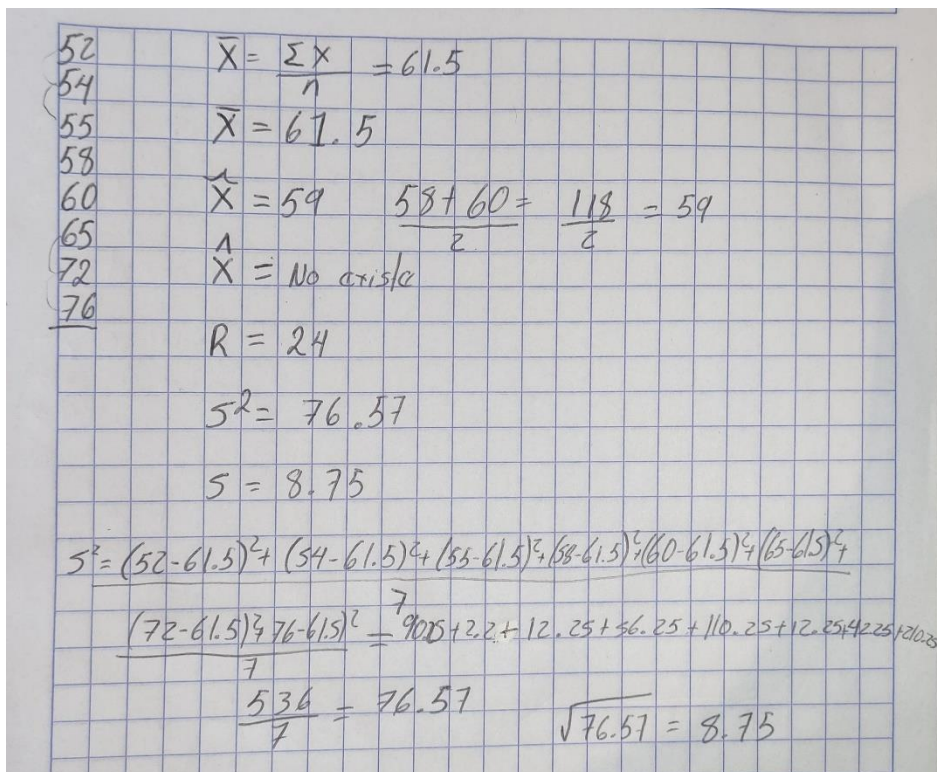 52
54
55
58
60
65
72
76
X̄ = ΣX / n = 61.5
X̄ = 61.5
X̃ = 59 58+60 / 2 = 118 / 2 = 59
X̂ = No existe
R = 24
S² = 76.57
S = 8.75
S² = (52-61.5)²+ (54-61.5)²+(55-61.5)²+(58-61.5)²+(60-61.5)²+(65-61.5)²+
7
(72-61.5)²+76-61.5)² / 7 = 90.25+2.2+12.25+56.25+110.25+12.25+42.25+210.25
536 / 7 = 76.57 √76.57 = 8.75